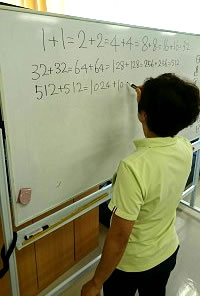 1+1=2+2=4+4=8+8=16+16=32
32+32=64+64=128+128=256+256=512
512+512=1024+10